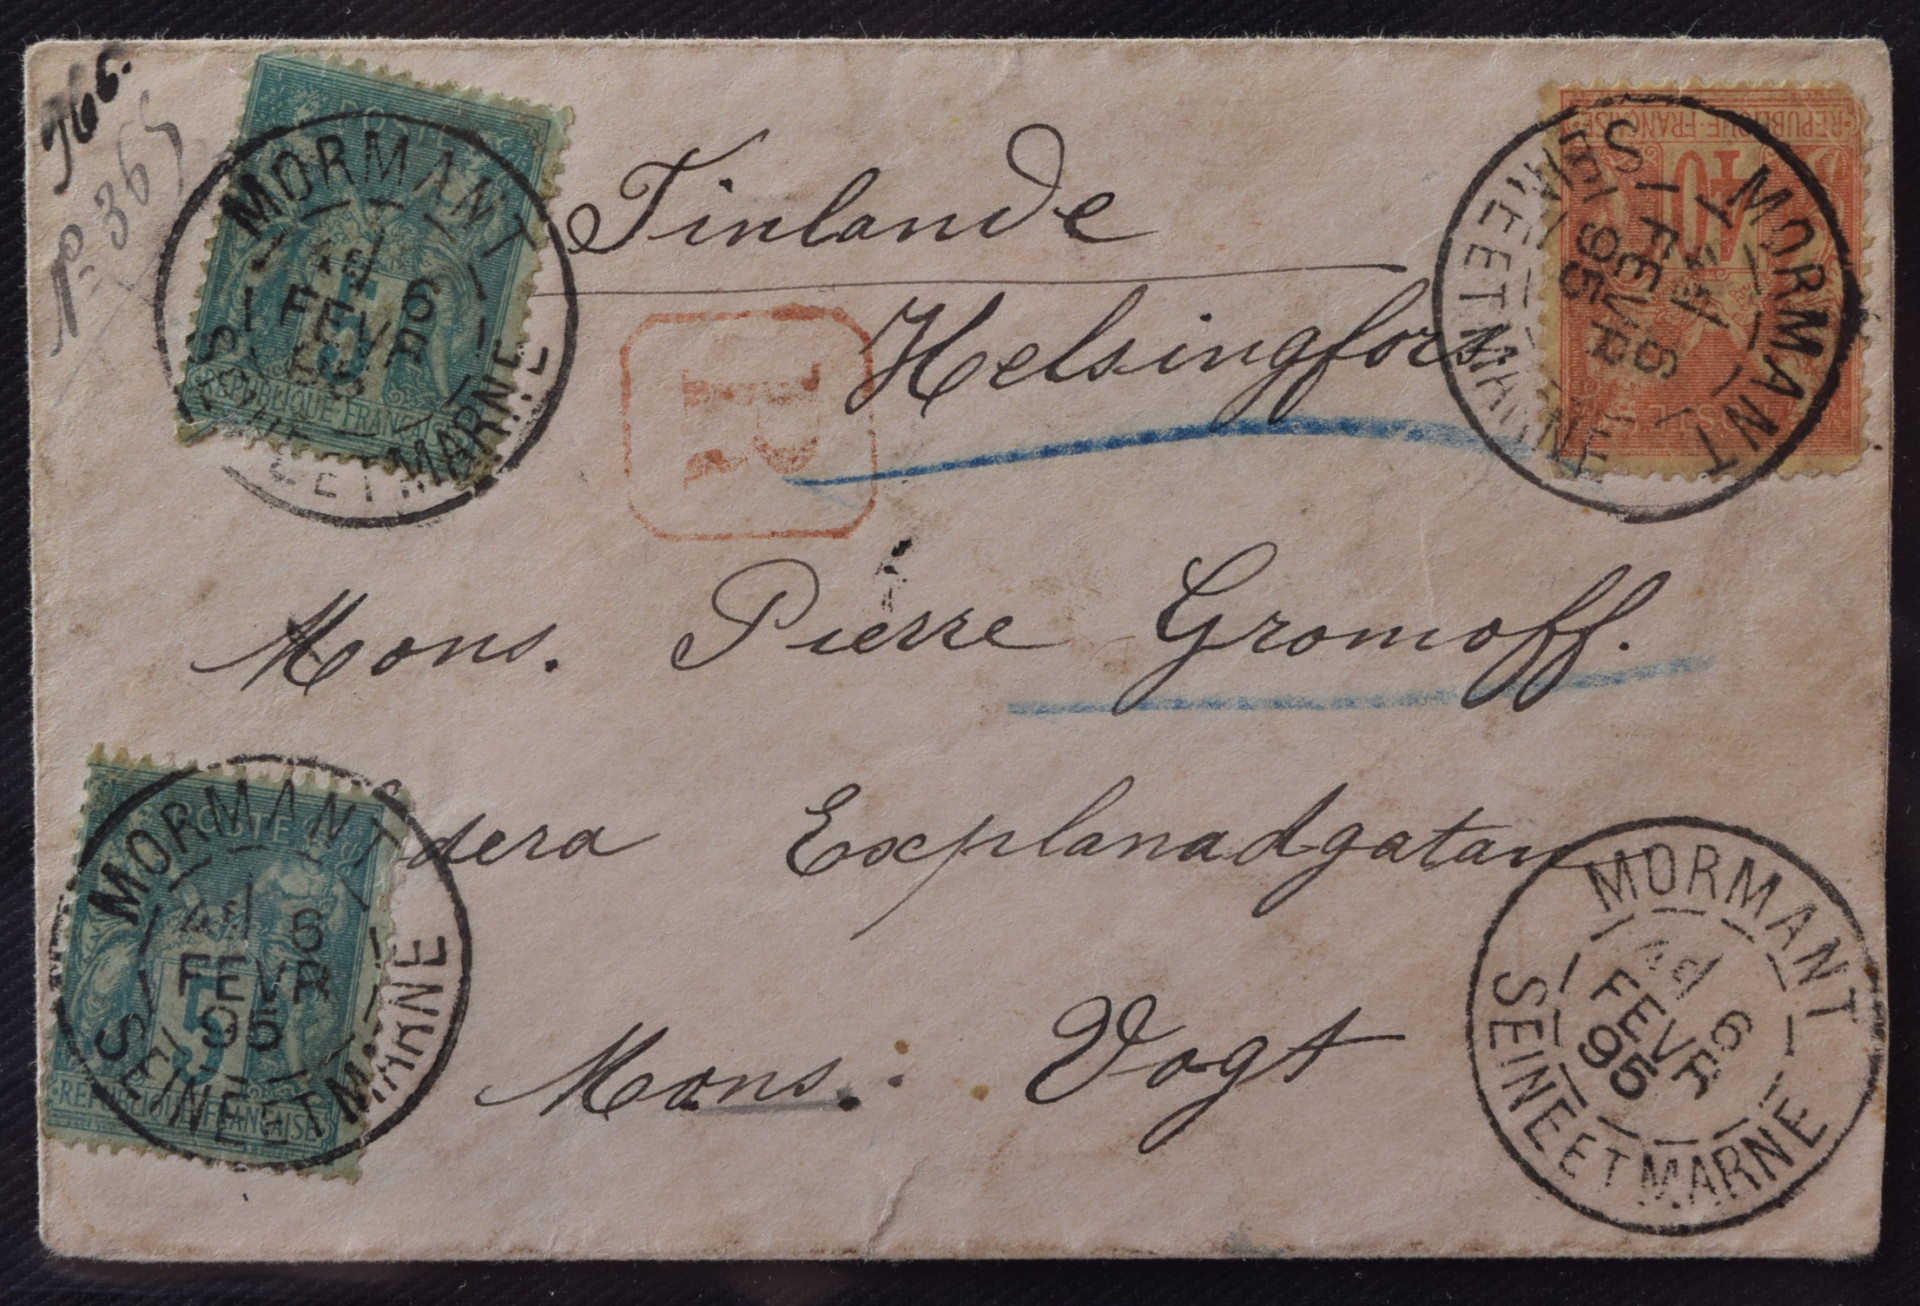 966.
No 365
POSTES
5
REPUBLIQUE FRANÇAISE
MORMANT
6
FEVR
95
SEINE ET MARNE
Finlande
Helsingfors.
R
REPUBLIQUE FRANÇAISE
40
POSTES
MORMANT
6
FEVR
95
SEINE ET MARNE
Mons. Pierre Gromoff.
dera Explanadgatan
Mons. Vogt
POSTES
5
REPUBLIQUE FRANÇAISE
MORMANT
6
FEVR
95
SEINE ET MARNE
MORMANT
6
FEVR
95
SEINE ET MARNE